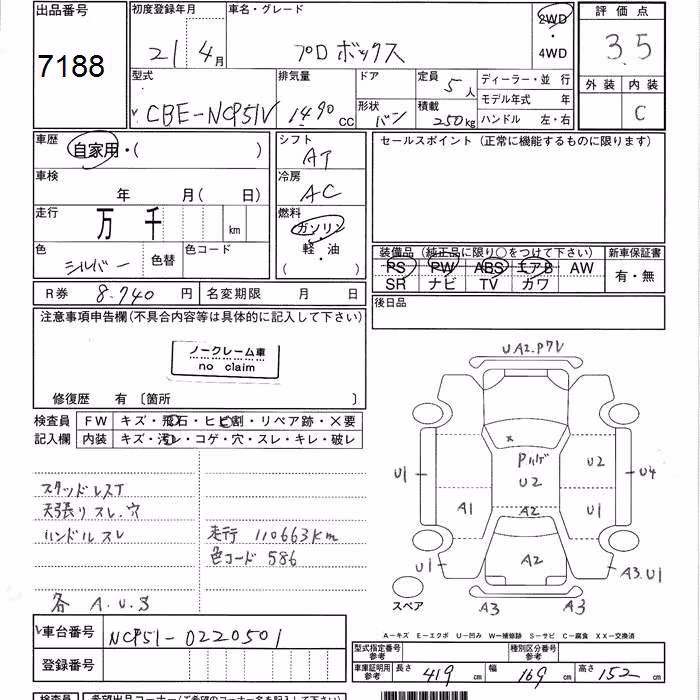 出品番号
7188
初度登録年月
21 4月
車名・グレード
プロボックス
2WD
・
4WD
評価点
3.5
外装 内装
C
型式
CBE-NCP51V
排気量
1490 cc
ドア
形状
バン
定員
5人
積載
250kg
ディーラー・並 行
モデル年式 年
ハンドル 左・右
車歴
自家用・( )
シフト
AT
セールスポイント (正常に機能するものに限ります)
車検
年 月( 日)
冷房
AC
走行
万 千 km
燃料
ガソリン
・
軽・油
( )
色
シルバー
色替
色コード
装備品 (純正品に限り○をつけて下さい)
PS PW ABS エアB AW
SR ナビ TV カワ
新車保証書
有・無
R券 8.740 円 名変期限 月 日
後日品
注意事項申告欄(不具合内容等は具体的に記入して下さい)
ノークレーム車
no claim
修復歴 有 〔箇所 〕
検査員 FW キズ・飛石・ヒビ割・リペア跡・×要
記入欄 内装 キズ・汚レ・コゲ・穴・スレ・キレ・破レ
スタッドレスT
天張りスレ.穴
ハンドルスレ
走行 110663km
色コード 586
各 A.U.S
UA2.P7V
x
Pハゲ
U2
U2
U1
U4
A1
A2
U1
U1
A2
A3.U1
スペア
A3
A3
車台番号 NCP51-0220501
登録番号
A−キズ E−エクボ U−凹ミ W−補修跡 S−サビ C−腐食 XX−交換済
型式指定番号
参考
種別区分番号
参考
車庫証明用
参考
長さ 419 幅 169 高さ 152 cm
検査員 希望出品コーナー(ご希望のコーナー名